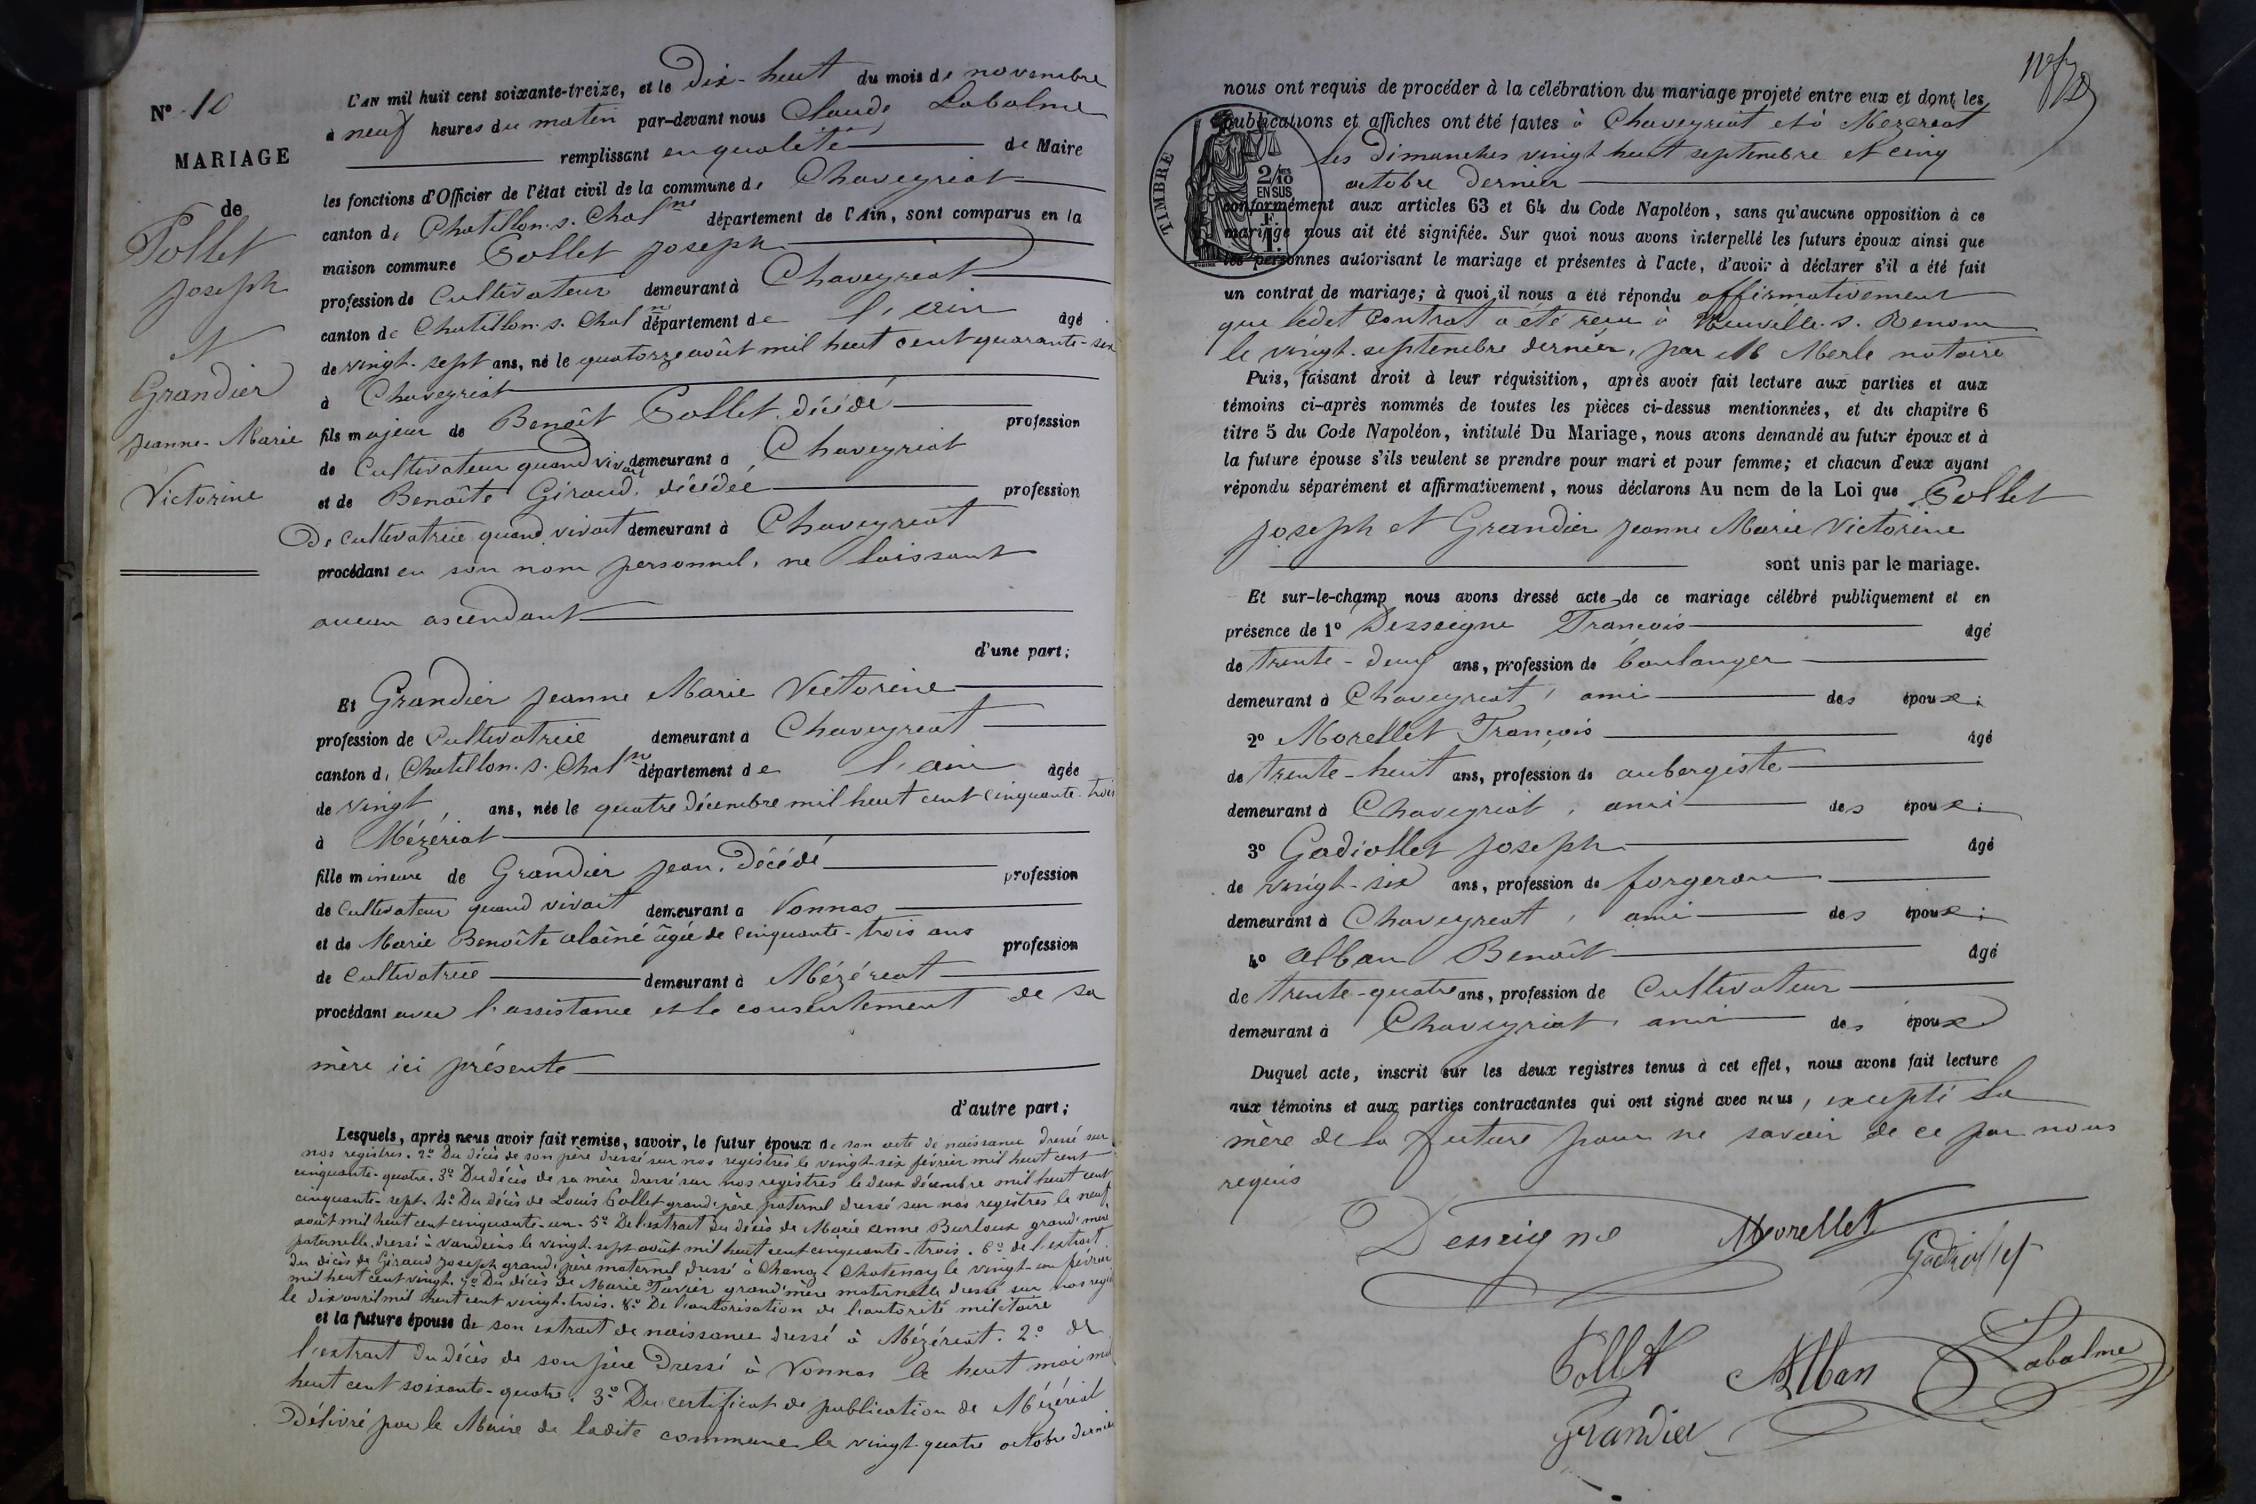 N° 10
MARIAGE
de
Pollet
Joseph
et
Grandier
Jeanne-Marie
Victorine
L'AN mil huit cent soixante-treize, et le Dix-huit du mois de novembre
à neuf heures du matin par-devant nous Claude Labalme
remplissant en qualité de Maire
les fonctions d'Officier de l'état civil de la commune de Chaveyriat
canton de Chatillon-s-Chalne département de l'Ain, sont comparus en la
maison commune Pollet Joseph
profession de Cultivateur demeurant à Chaveyriat
canton de Chatillon-s-Chalne département de l'ain âgé
de vingt-sept ans, né le quatorze août mil huit cent quarante-six
à Chaveyriat
fils majeur de Benoît Pollet, décédé profession
de Cultivateur quand vivait demeurant à Chaveyriat
et de Benoîte Giraud, décédée profession
De cultivatrice quand vivait demeurant à Chaveyriat
procédant en son nom personnel, ne laissant
aucun ascendant
d'une part;
Et Grandier Jeanne Marie Victorine
profession de Cultivatrice demeurant à Chaveyriat
canton de Chatillon-s-Chalne département de l'ain âgée
de vingt, ans, née le quatre décembre mil huit cent cinquante-trois
à Mézériat
fille mineure de Grandier Jean, Décédé profession
de Cultivateur quand vivait demeurant à Vonnas
et de Marie Benoîte alainé âgée de cinquante-trois ans profession
de Cultivatrice demeurant à Mézériat
procédant avec l'assistance et le consentement de sa
mère ici présente
d'autre part;
Lesquels, après nous avoir fait remise, savoir, le futur époux de son acte de naissance dressé sur
nos registres. 2° Du décès de son père dressé sur nos registres le vingt-six février mil huit cent
cinquante-quatre. 3° Du décès de sa mère dressé sur nos registres le deux décembre mil huit cent
cinquante-sept. 4° Du décès de Louis Pollet grand'père paternel dressé sur nos registres le neuf
août mil huit cent cinquante-un. 5° De l'extrait du décès de Marie anne Burloux grand'mère
paternelle, dressé à Vandeins le vingt-sept août mil huit cent cinquante-trois. 6° de l'extrait
du décès de Giraud Joseph grand'père maternel dressé à Chanoz-Chatenay le vingt-un février
mil huit cent vingt. 7° Du décès de Marie Favier grand'mère maternelle dressé sur nos regis
le dix avril mil huit cent vingt-trois. 8° De l'autorisation de l'autorité militaire
et la future épouse de son extrait de naissance dressé à Mézériat. 2° de
l'extrait du décès de son père Dressé à Vonnas le huit mai mil
huit cent soixante-quatre. 3° Du certificat de publication de Mézériat
Délivré par le Maire de ladite commune le vingt-quatre octobre dernier
nous ont requis de procéder à la célébration du mariage projeté entre eux et dont les
publications et affiches ont été faites à Chaveyriat et à Mezeriat
les dimanches vingt huit septembre et cinq
octobre dernier
TIMBRE
2/10 EN SUS
conformément aux articles 63 et 64 du Code Napoléon, sans qu'aucune opposition à ce
mariage nous ait été signifiée. Sur quoi nous avons interpellé les futurs époux ainsi que
les personnes autorisant le mariage et présentes à l'acte, d'avoir à déclarer s'il a été fait
un contrat de mariage; à quoi il nous a été répondu affirmativement
que ledit Contrat a été reçu à Neuville-s-Renom
le vingt-septembre dernier, par Me Merle notaire
Puis, faisant droit à leur réquisition, après avoir fait lecture aux parties et aux
témoins ci-après nommés de toutes les pièces ci-dessus mentionnées, et du chapitre 6
titre 5 du Code Napoléon, intitulé Du Mariage, nous avons demandé au futur époux et à
la future épouse s'ils veulent se prendre pour mari et pour femme; et chacun d'eux ayant
répondu séparément et affirmativement, nous déclarons Au nom de la Loi que Pollet
Joseph et Grandier Jeanne Marie Victorine
sont unis par le mariage.
Et sur-le-champ nous avons dressé acte de ce mariage célébré publiquement et en
présence de 1° Desseigne François âgé
de trente-deux ans, profession de boulanger
demeurant à Chaveyriat, ami des époux;
2° Morellet François âgé
de trente-huit ans, profession de aubergiste
demeurant à Chaveyriat, ami des époux;
3° Gadiollet Joseph âgé
de vingt-six ans, profession de forgeron
demeurant à Chaveyriat, ami des époux;
4° Alban Benoît âgé
de trente-quatre ans, profession de Cultivateur
demeurant à Chaveyriat, ami des époux
Duquel acte, inscrit sur les deux registres tenus à cet effet, nous avons fait lecture
aux témoins et aux parties contractantes qui ont signé avec nous, excepté la
mère de la future pour ne savoir de ce par nous
requis
Desseigne Morellet Gadiollet
Pollet Alban Labalme
Grandier